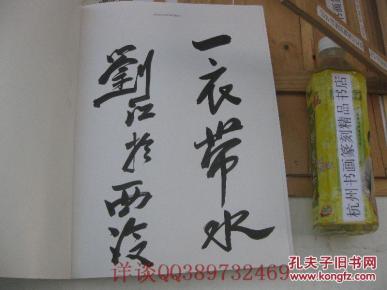 一衣带水
劉江於西泠
杭州书画篆刻精品书店
详谈QQ389732469
孔夫子旧书网